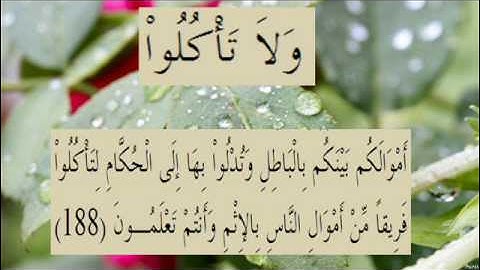 وَلاَ تَأْكُلُواْ
أَمْوَالَكُم بَيْنَكُم بِالْبَاطِلِ وَتُدْلُواْ بِهَا إِلَى الْحُكَّامِ لِتَأْكُلُواْ
فَرِيقاً مِّنْ أَمْوَالِ النَّاسِ بِالإِثْمِ وَأَنتُمْ تَعْلَمُـــونَ (188)